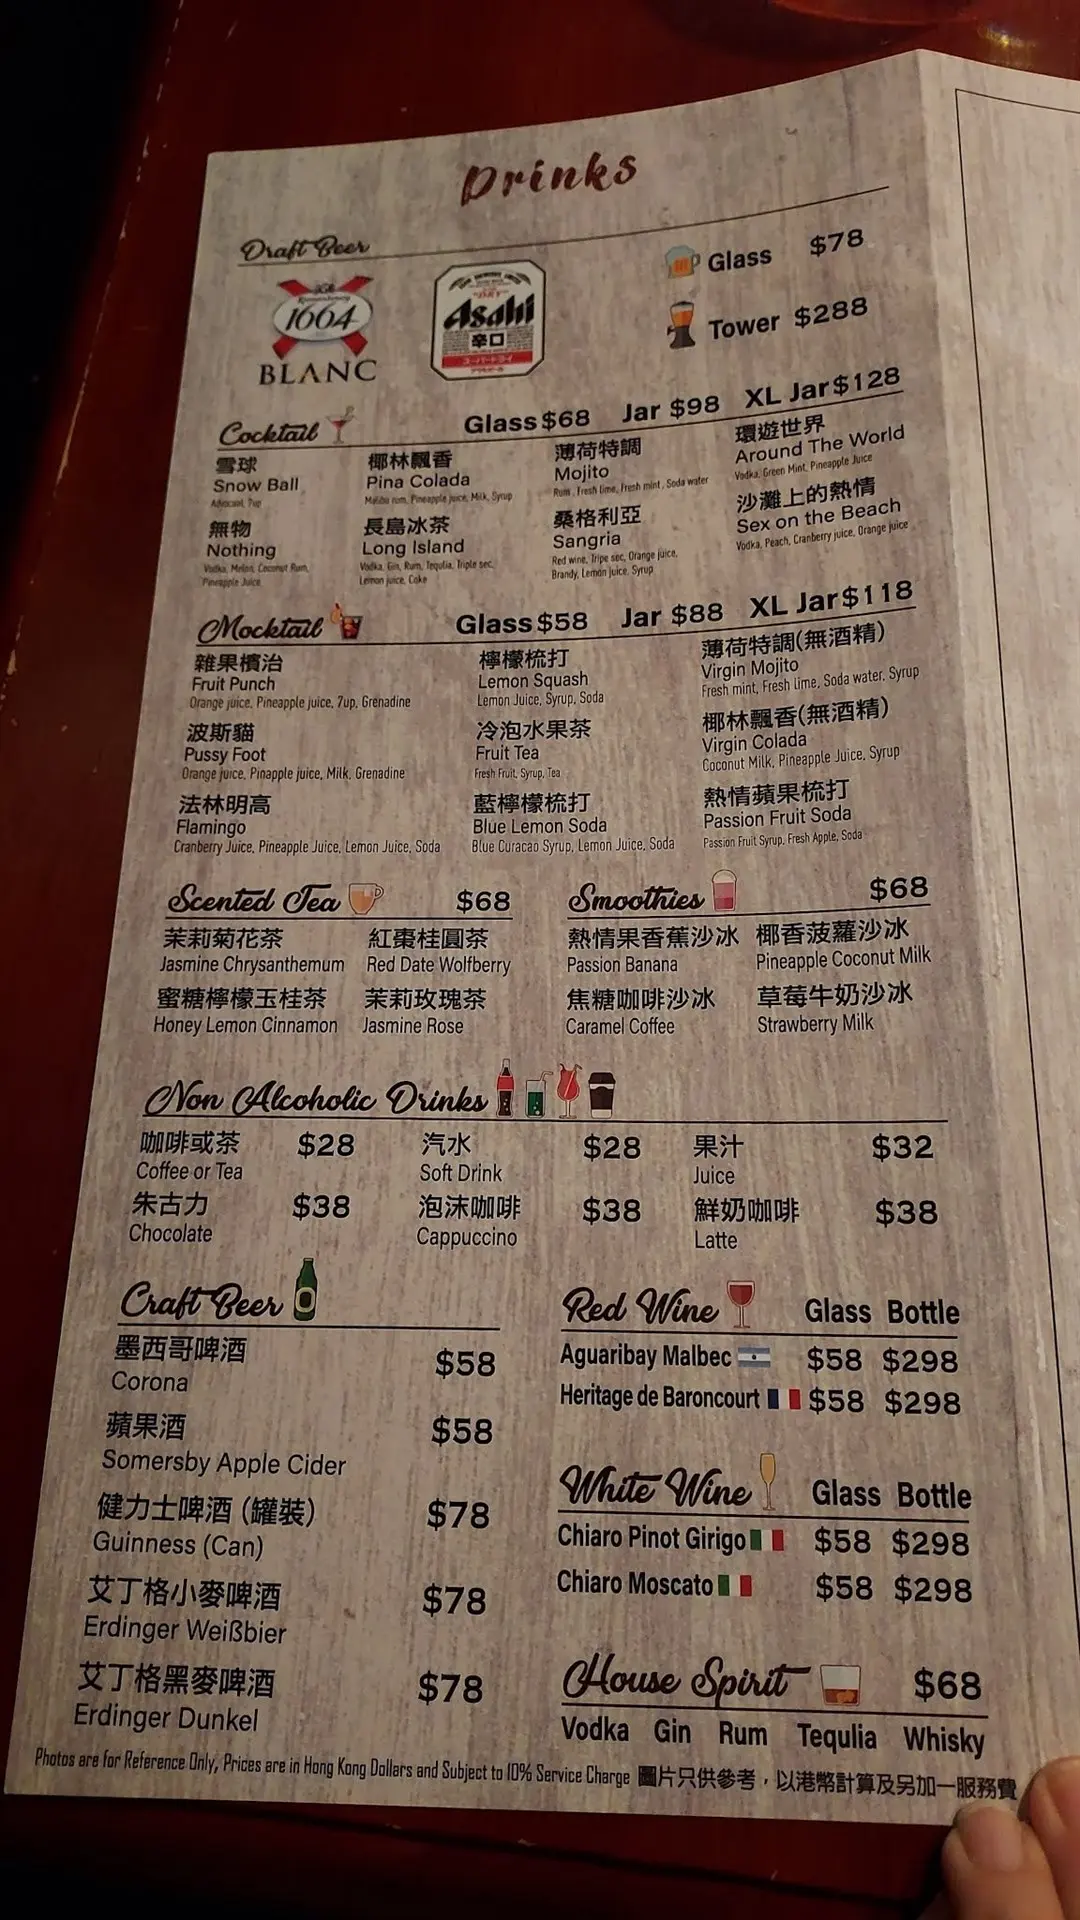 Drinks
Draft Beer
1664
BLANC
Asahi
辛口
Glass $78
Tower $288
Cocktail Glass $68 Jar $98 XL Jar $128
雪球
Snow Ball
Advocaat, 7up
無物
Nothing
Vodka, Melon, Coconut Rum,
Pineapple Juice
椰林飄香
Pina Colada
Malibu rum, Pineapple juice, Milk, Syrup
長島冰茶
Long Island
Vodka, Gin, Rum, Tequlia, Triple sec,
Lemon juice, Coke
薄荷特調
Mojito
Rum, Fresh lime, Fresh mint, Soda water
桑格利亞
Sangria
Red wine, Tripe sec, Orange juice,
Brandy, Lemon juice, Syrup
環遊世界
Around The World
Vodka, Green Mint, Pineapple Juice
沙灘上的熱情
Sex on the Beach
Vodka, Peach, Cranberry juice, Orange juice
Mocktail Glass $58 Jar $88 XL Jar $118
雜果檳治
Fruit Punch
Orange juice, Pineapple juice, 7up, Grenadine
波斯貓
Pussy Foot
Orange juice, Pinapple juice, Milk, Grenadine
法林明高
Flamingo
Cranberry Juice, Pineapple Juice, Lemon Juice, Soda
檸檬梳打
Lemon Squash
Lemon Juice, Syrup, Soda
冷泡水果茶
Fruit Tea
Fresh Fruit, Syrup, Tea
藍檸檬梳打
Blue Lemon Soda
Blue Curacao Syrup, Lemon Juice, Soda
薄荷特調(無酒精)
Virgin Mojito
Fresh mint, Fresh lime, Soda water, Syrup
椰林飄香(無酒精)
Virgin Colada
Coconut Milk, Pineapple Juice, Syrup
熱情蘋果梳打
Passion Fruit Soda
Passion Fruit Syrup, Fresh Apple, Soda
Scented Tea $68
茉莉菊花茶
Jasmine Chrysanthemum
紅棗桂圓茶
Red Date Wolfberry
蜜糖檸檬玉桂茶
Honey Lemon Cinnamon
茉莉玫瑰茶
Jasmine Rose
Smoothies $68
熱情果香蕉沙冰
Passion Banana
椰香菠蘿沙冰
Pineapple Coconut Milk
焦糖咖啡沙冰
Caramel Coffee
草莓牛奶沙冰
Strawberry Milk
Non Alcoholic Drinks
咖啡或茶 $28
Coffee or Tea
汽水 $28
Soft Drink
果汁 $32
Juice
朱古力 $38
Chocolate
泡沫咖啡 $38
Cappuccino
鮮奶咖啡 $38
Latte
Craft Beer
墨西哥啤酒 $58
Corona
蘋果酒 $58
Somersby Apple Cider
健力士啤酒 (罐裝) $78
Guinness (Can)
艾丁格小麥啤酒 $78
Erdinger Weißbier
艾丁格黑麥啤酒 $78
Erdinger Dunkel
Red Wine Glass Bottle
Aguaribay Malbec $58 $298
Heritage de Baroncourt $58 $298
White Wine Glass Bottle
Chiaro Pinot Girigo $58 $298
Chiaro Moscato $58 $298
House Spirit $68
Vodka Gin Rum Tequlia Whisky
Photos are for Reference Only, Prices are in Hong Kong Dollars and Subject to 10% Service Charge 圖片只供參考，以港幣計算及另加一服務費